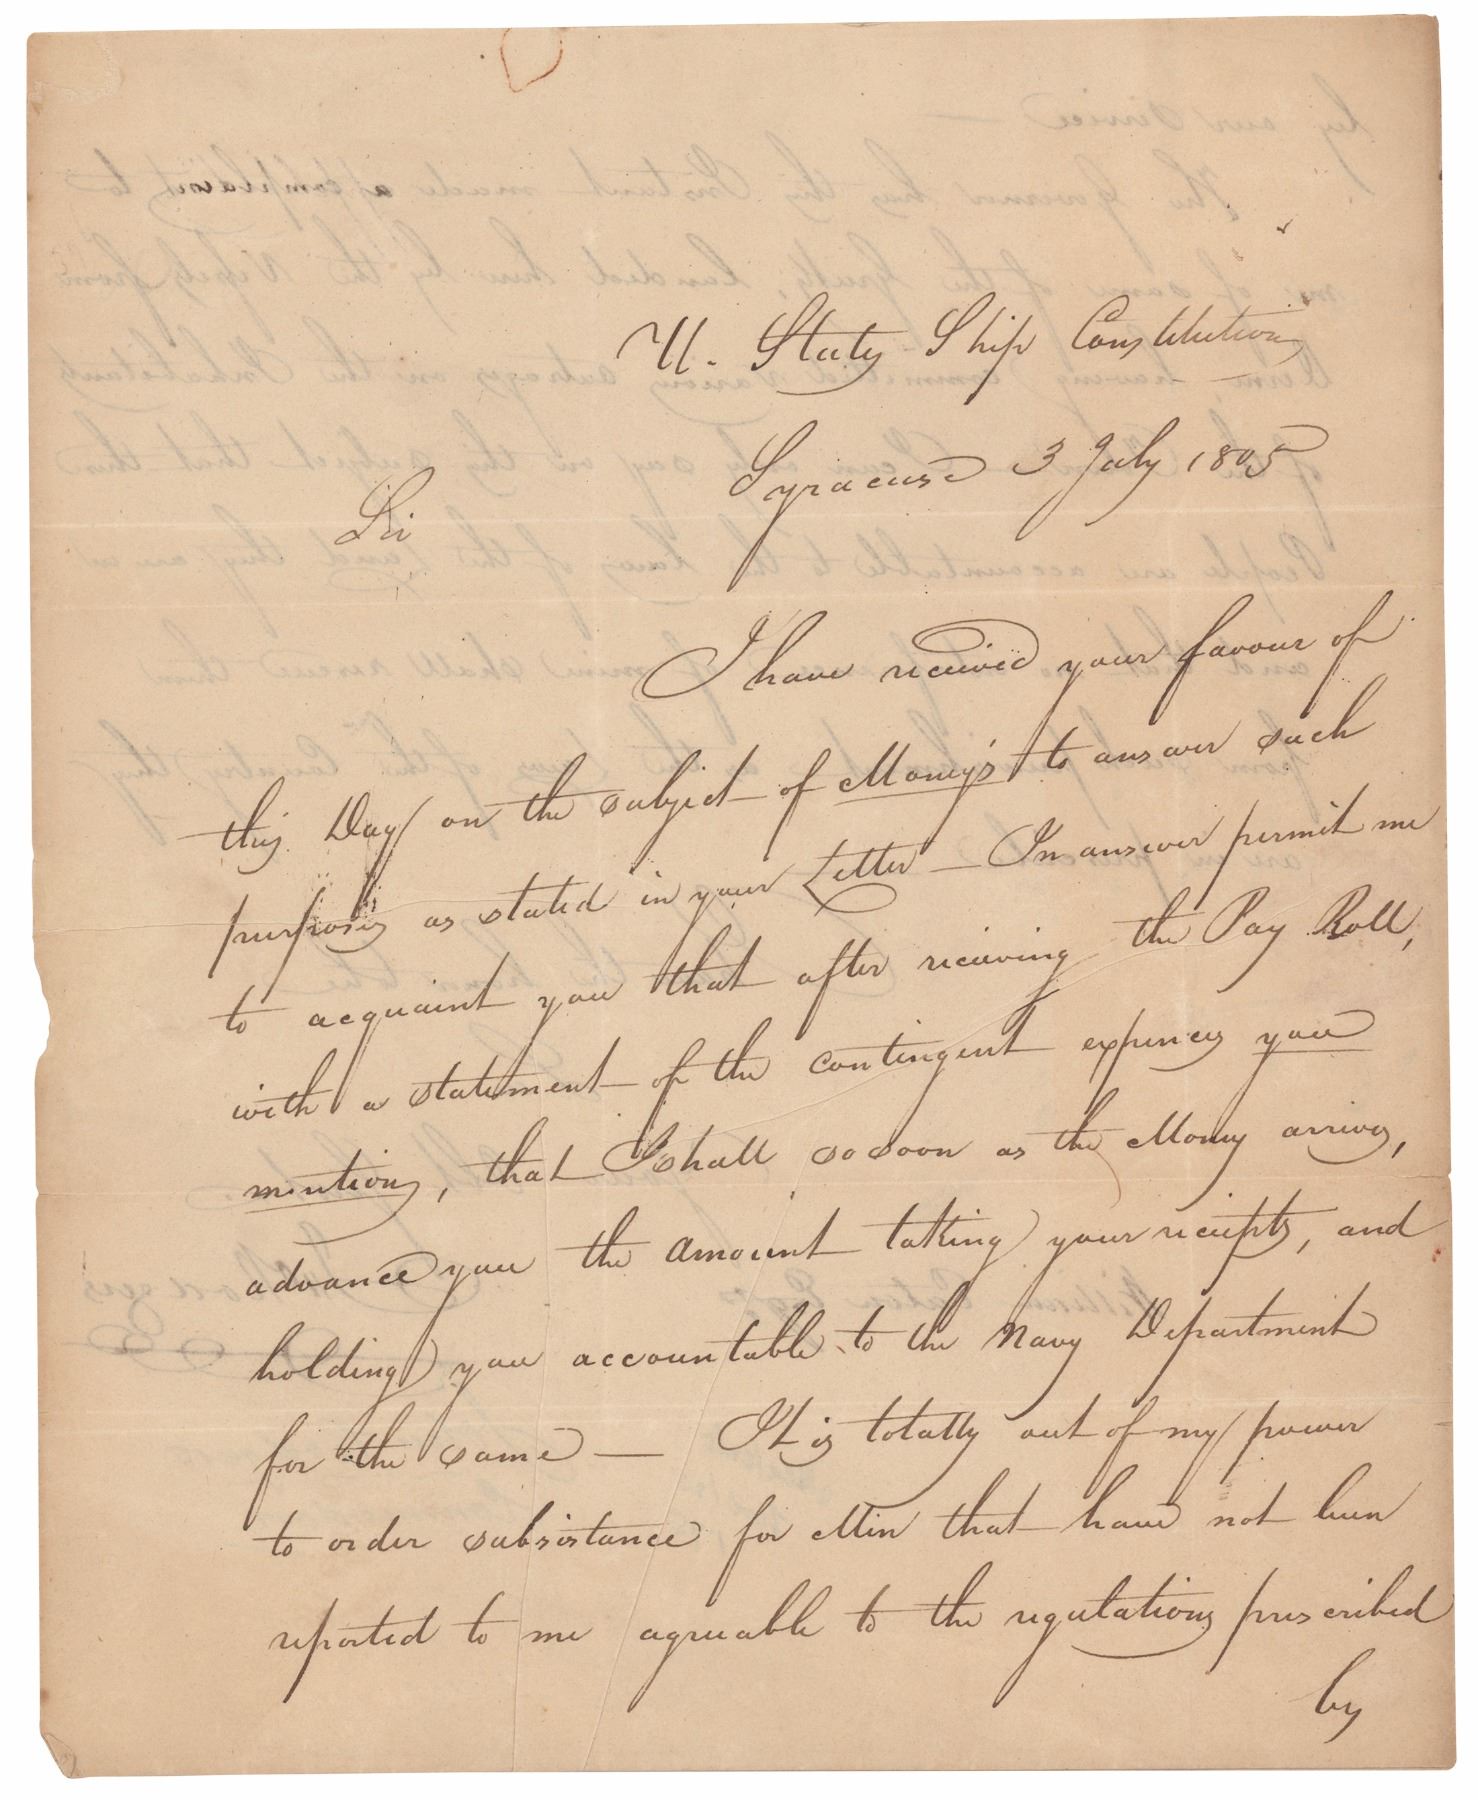 U. States Ship Constitution
Syracuse 3 July 1805
Sir
I have received your favour of
this Day on the subject of Money's to answer such
purposes as stated in your Letter — In answer permit me
to acquaint you that after receiving the Pay Roll,
with a statement of the contingent expences you
mention, that I shall so soon as the Money arrives,
advance you the amount taking your receipts, and
holding you accountable to the Navy Department
for the same — It is totally out of my power
to order subsistance for Men that have not been
reported to me agreeable to the regulations prescribed
by